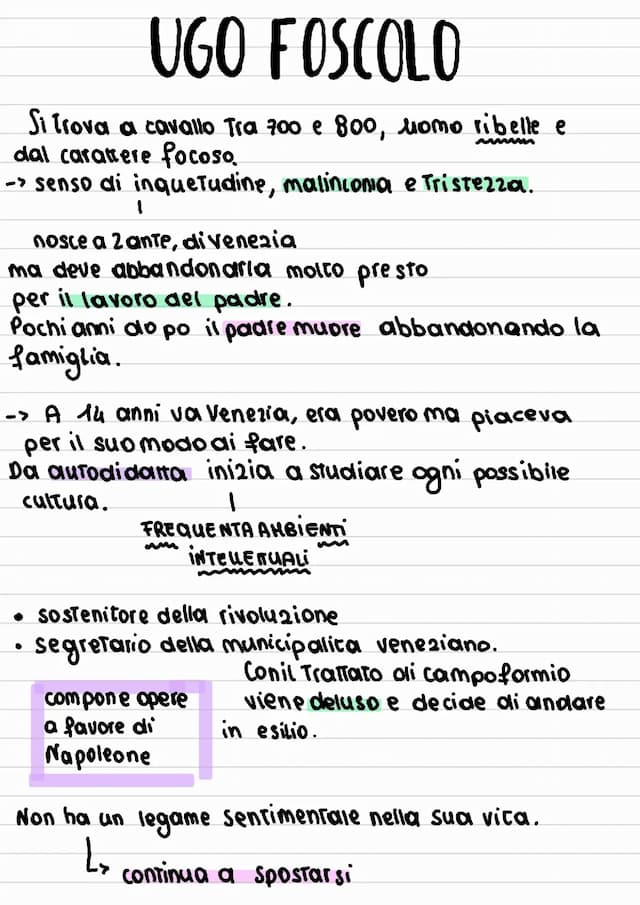 UGO FOSCOLO
Si trova a cavallo tra 700 e 800, uomo ribelle e
dal carattere focoso.
-> senso di inquetudine, malinconia e tristezza.
nasce a Zante, di venezia
ma deve abbandonarla molto presto
per il lavoro del padre.
Pochi anni dopo il padre muore abbandonando la
famiglia.
-> A 14 anni va Venezia, era povero ma piaceva
per il suo modo di fare.
Da autodidatta inizia a studiare ogni possibile
cultura.
FREQUENTA AMBIENTI
INTELLETUALI
• sostenitore della rivoluzione
• segretario della municipalita veneziano.
Con il Trattato di campoformio
viene deluso e decide di andare
in esilio.
compone opere
a favore di
Napoleone
Non ha un legame sentimentale nella sua vita.
continua a spostarsi